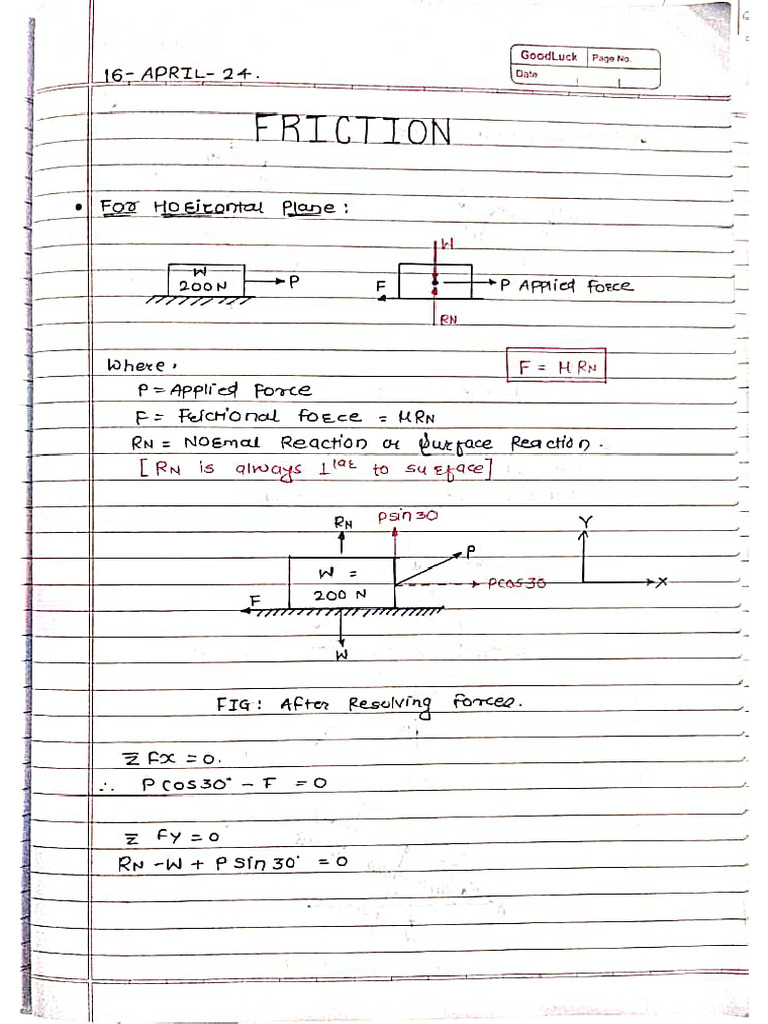 GoodLuck Page No.
Date
16-APRIL-24.
FRICTION
• For Horizontal Plane:
W
200N
P
W
F
P Applied force
RN
Where,
F = μRN
P = Applied Force
F = Frictional force = μRN
RN = Normal Reaction or Surface Reaction.
[RN is always ⊥lar to surface]
RN
Psin30
Y
P
W =
200 N
Pcos30
X
F
W
FIG: After Resolving forces.
Σ Fx = 0.
∴ P cos30° - F = 0
Σ Fy = 0
RN - W + P sin30° = 0